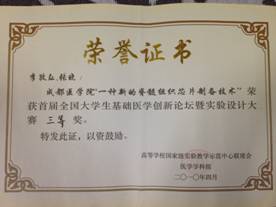 荣誉证书
成都医学院“一种新的脊髓组织芯片制备技术”荣
获首届全国大学生基础医学创新论坛暨实验设计大
赛 三等 奖。
特发此证，以资鼓励。
高等学校国家级实验教学示范中心联席会
医学学科组
二〇一〇年四月